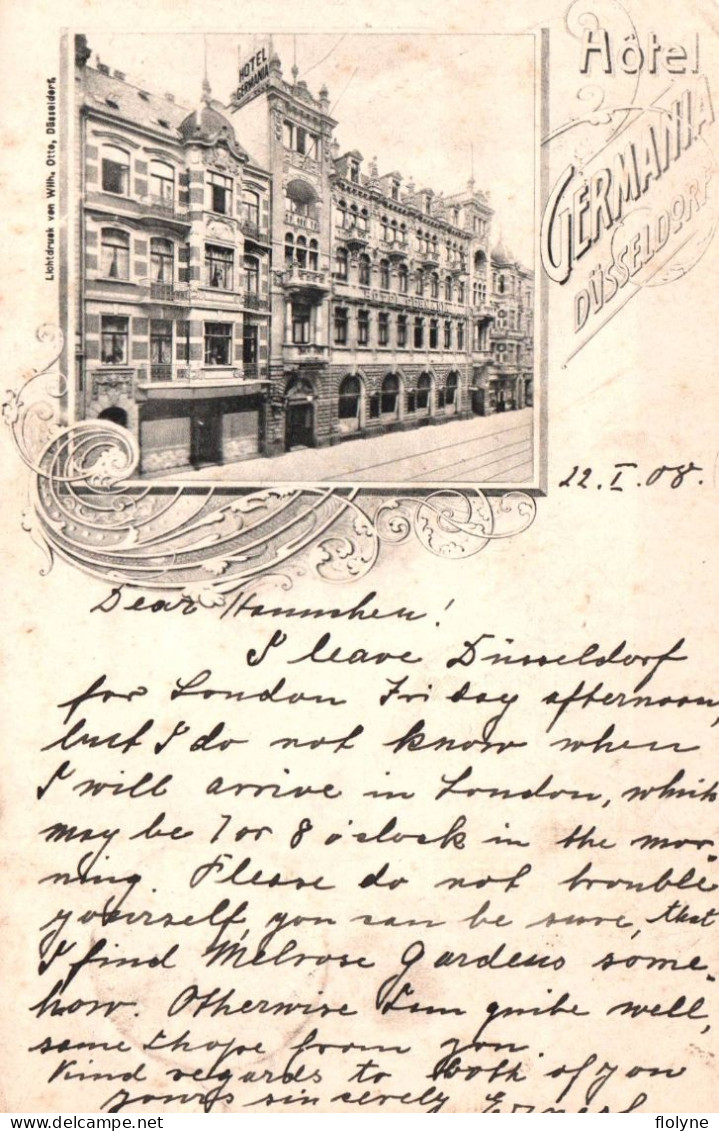 Hôtel
GERMANIA
DÜSSELDORF
HOTEL
GERMANIA
Lichtdruck von Wilh. Otto, Düsseldorf.
22.I.08.
Dear Hannchen!
I leave Düsseldorf
for London Friday afternoon,
but I do not know when
I will arrive in London, which
may be 7 or 8 o'clock in the mor-
ning. Please do not trouble
yourself, you can be sure, that
I find Melrose Gardens some-
how. Otherwise I am quite well,
same I hope from you
Kind regards to both of you
yours sincerely Ernest
flolyne